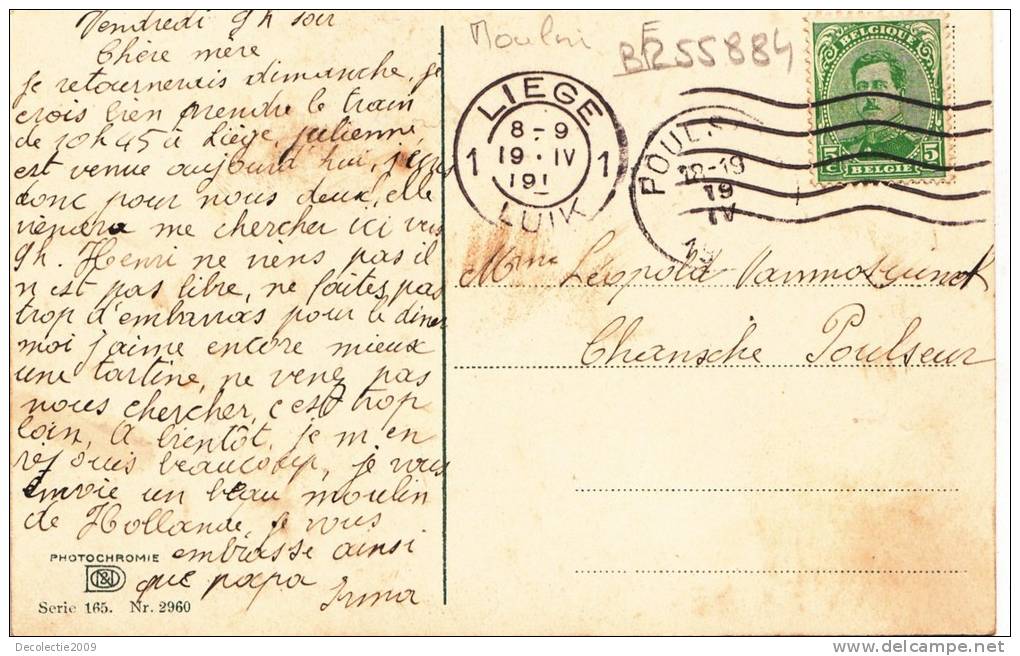 Vendredi 9h soir
Chère mère
je retournerais dimanche, je
crois bien prendre le train
de 10h45 à Liège, julienne
est venue aujourd'hui, j'écris
donc pour nous deux, elle
viendra me chercher ici vers
9h. Henri ne viens pas il
n'est pas libre, ne faites pas
trop d'embarras pour le diner
moi j'aime encore mieux
une tartine, ne venez pas
nous chercher, c'est trop
loin, A bientôt, je m'en
réjouis beaucoup, je vous
envoie un beau moulin
de Hollande, je vous
embrasse ainsi
que papa
Irma
PHOTOCHROMIE
Serie 165. Nr. 2960
Moulin
55884
LIEGE
8-9
1 19·IV 1
191
LUIK
POULS
18-19
19
IV
19
BELGIQUE
5c 5c
BELGIE
Mme Léopold
Chansche Poulseur
Decolectie2009
delcampe.net